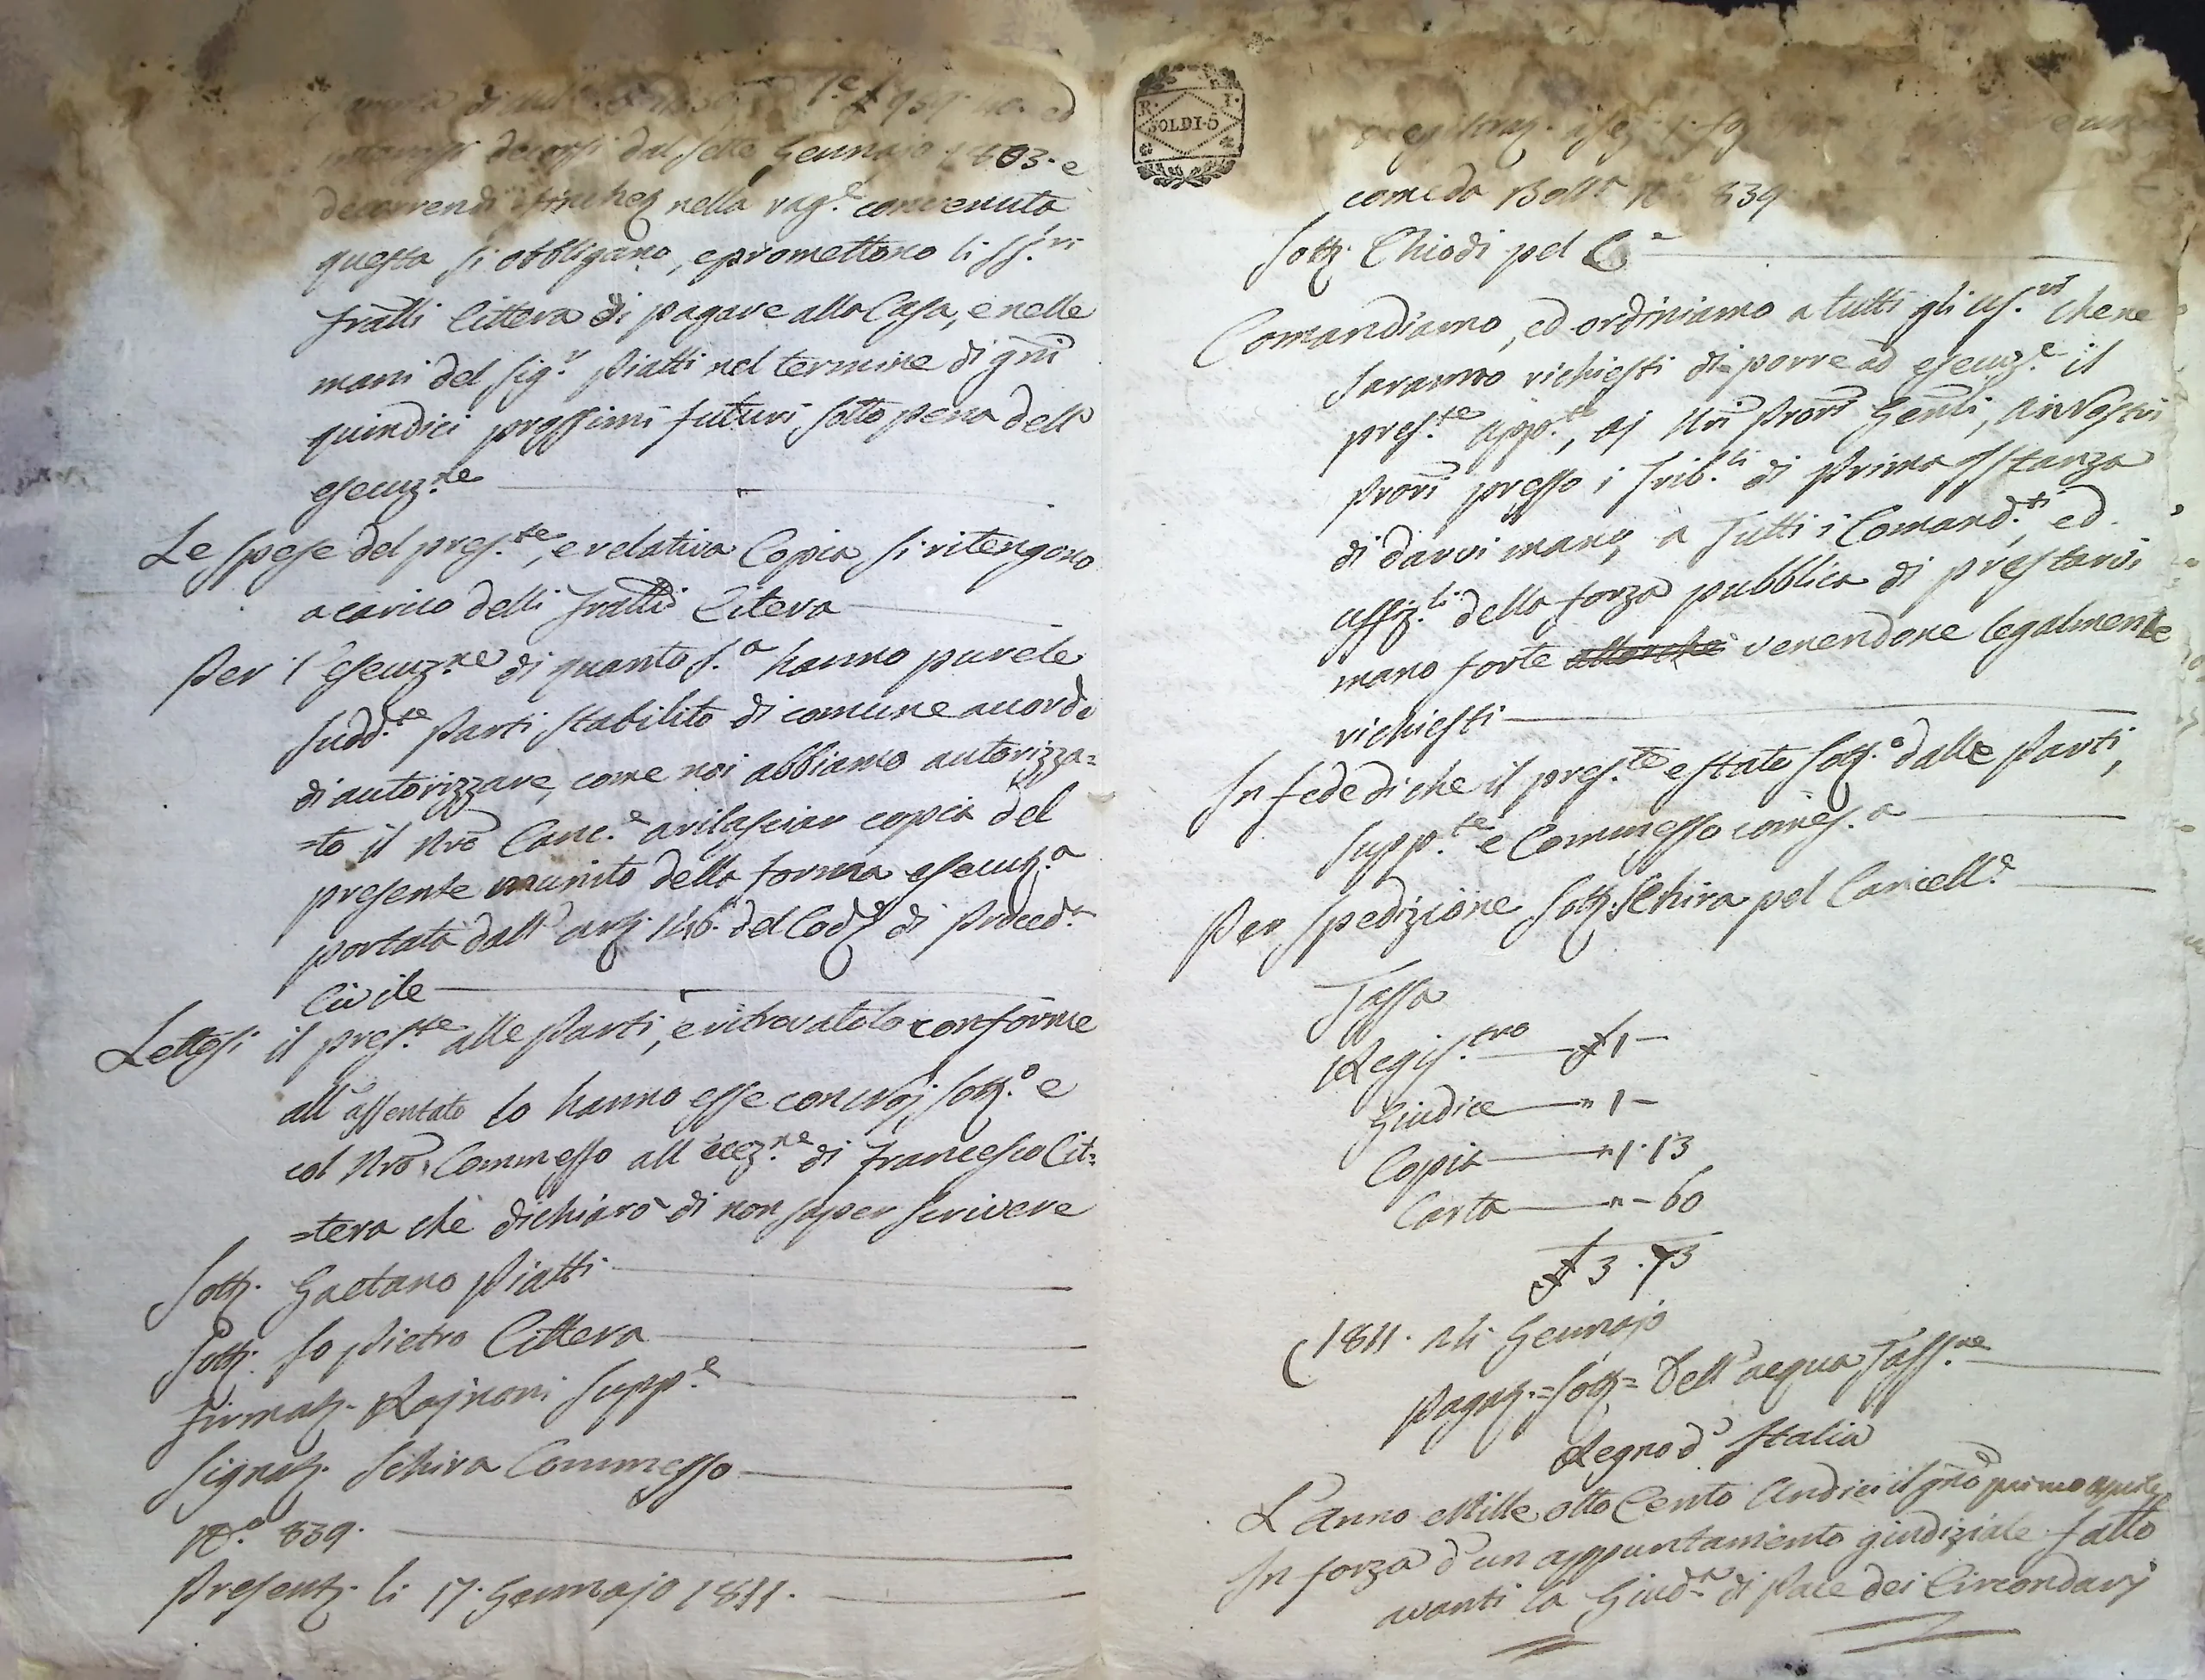 di
decorsi dal sette Gennajo 1803. e
decorrendi finchez nella rag.e convenuta
questa si obbligano, e promettono li SS.ri
fratelli Cittera di pagare alla Casa, e nelle
mani del Sig.r Piatti nel termine di gni
quindici prossimi futuri sotto pena dell'
esecuz.ne
Le spese del pres.te, e relativa Copia si ritengono
a carico delli fratelli Citera
Per l'esecuz.ne di quanto s.a hanno pure le
sudd.te Parti stabilito di comune accordo
di autorizzare, come noi abbiamo autorizza=
=to il Nro Canc.e a rilasciar copia del
presente munito della forma esecut.a
portata dall' art. 146. del Cod.e di Proced.a
Civile
Lettosi il pres.te alle Parti, e ritrovatolo conforme
all'assentato lo hanno esse con noj sott.o e
col Nro Commesso all'ecez.ne di Francesco Cit=
=tera che dichiarò di non saper scrivere
Sott. Gaetano Piatti
Sott. Io Pietro Cittera
Firmat. Rajnoni Supp.e
Signat. Schira Commesso
N.o 839.
Present. li 17. Gennajo 1811.
R. I.
SOLDI-5
come da Boll.a N.o 839
Sott. Chiodi pel C
Comandiamo, ed ordiniamo a tutti gli us.ri che ne
saranno richiesti di porre ad esecuz.e il
pres.te app.to, aj Nri Prori Genli,
Prori presso i Trib.li di Prima Istanza
di darvi mano, a Tutti i Comand.ti ed
Uffiz.li della forza pubblica di prestarvi
mano forte venendone legalmente
richiesti
In fede di che il pres.te e stato sott.o dalle Parti,
Supp.te e Commesso come s.a
Per spedizione Sott. Schira pel Cancell.e
Tassa
Regis.tro £ 1 -
Giudice " 1 -
Copia " 1. 13
Carta " - 60
£ 3. 73
1811. Gennajo
Pagat. = Sott. = Dell'acqua Tass.re
Regno d'Italia
L'anno Mille otto Cento Undici il gno primo aprile
In forza d'un appuntamento giudiziale fatto
avanti la Giud.a di Pace dei Circondarj